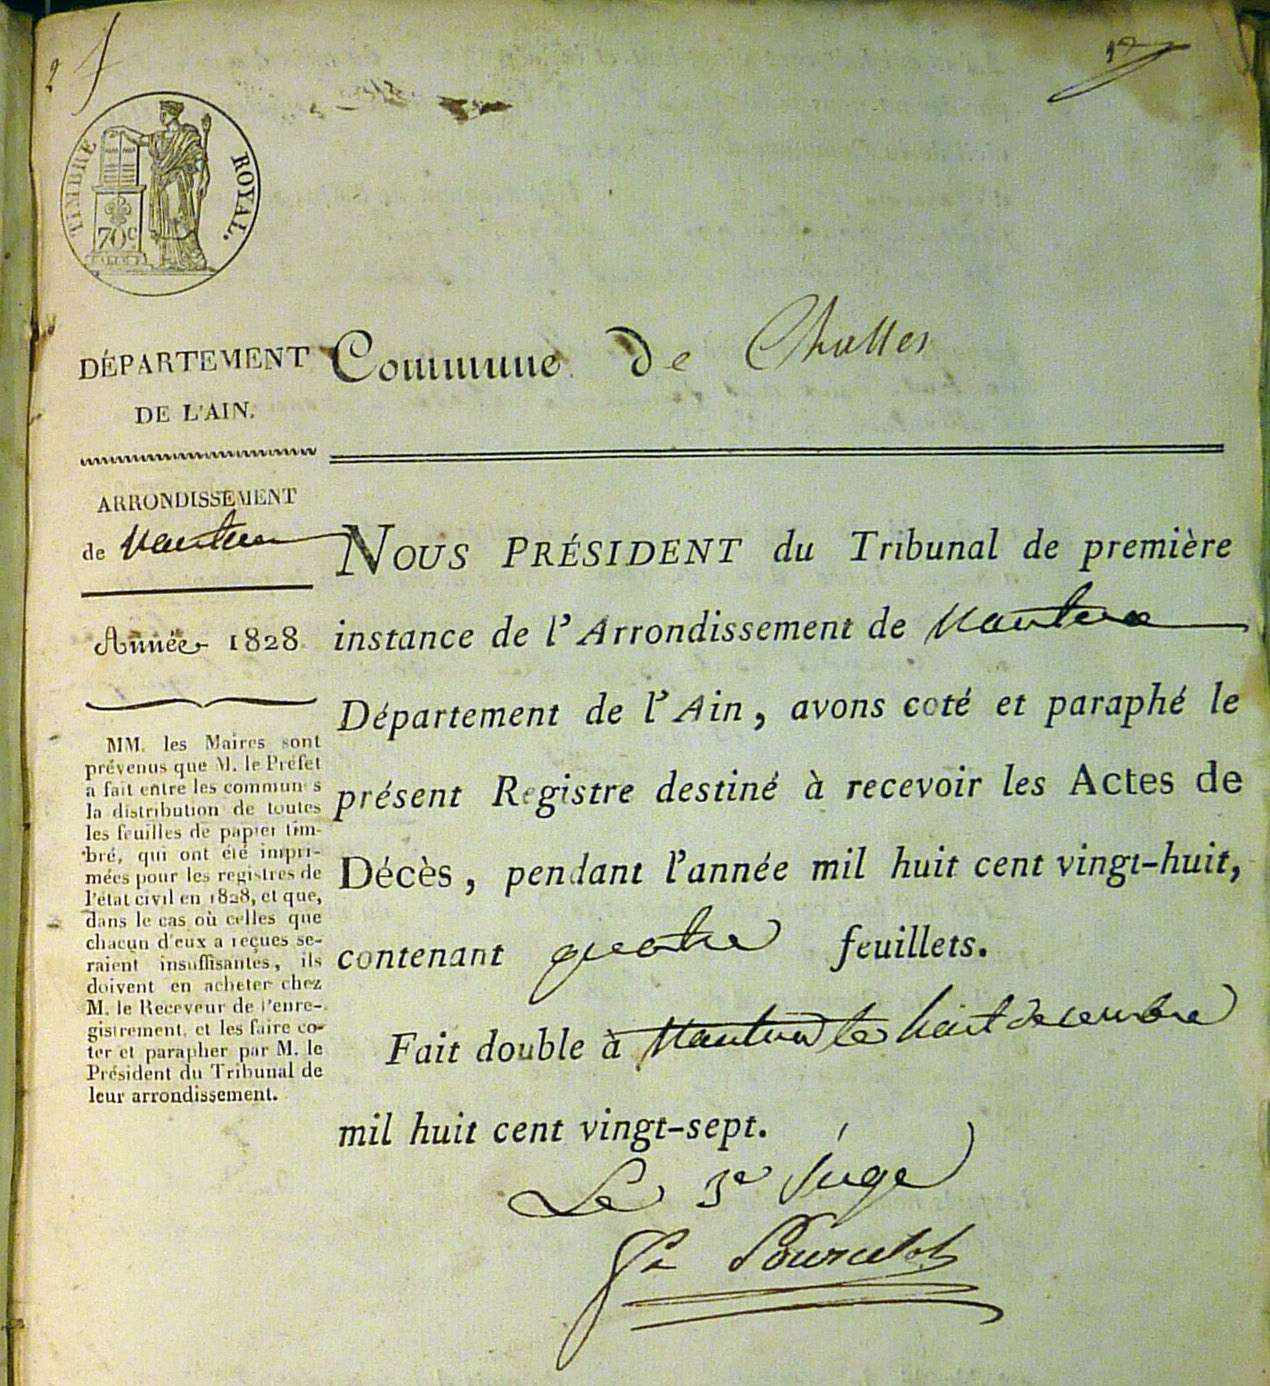 TIMBRE ROYAL.
70c
DÉPARTEMENT
DE L'AIN.
Commune de Challes
ARRONDISSEMENT
de Nantua
Année 1828
MM. les Maires sont
prévenus que M. le Préfet
a fait entre les communes
la distribution de toutes
les feuilles de papier tim-
bré, qui ont été impri-
mées pour les registres de
l'état civil en 1828, et que,
dans le cas où celles que
chacun d'eux a reçues se-
raient insuffisantes, ils
doivent en acheter chez
M. le Receveur de l'enre-
gistrement, et les faire co-
ter et parapher par M. le
Président du Tribunal de
leur arrondissement.
NOUS PRÉSIDENT du Tribunal de première
instance de l'Arrondissement de Nantua
Département de l'Ain, avons coté et paraphé le
présent Registre destiné à recevoir les Actes de
Décès, pendant l'année mil huit cent vingt-huit,
contenant quatre feuillets.
Fait double à Nantua le huit decembre
mil huit cent vingt-sept.
Le Juge